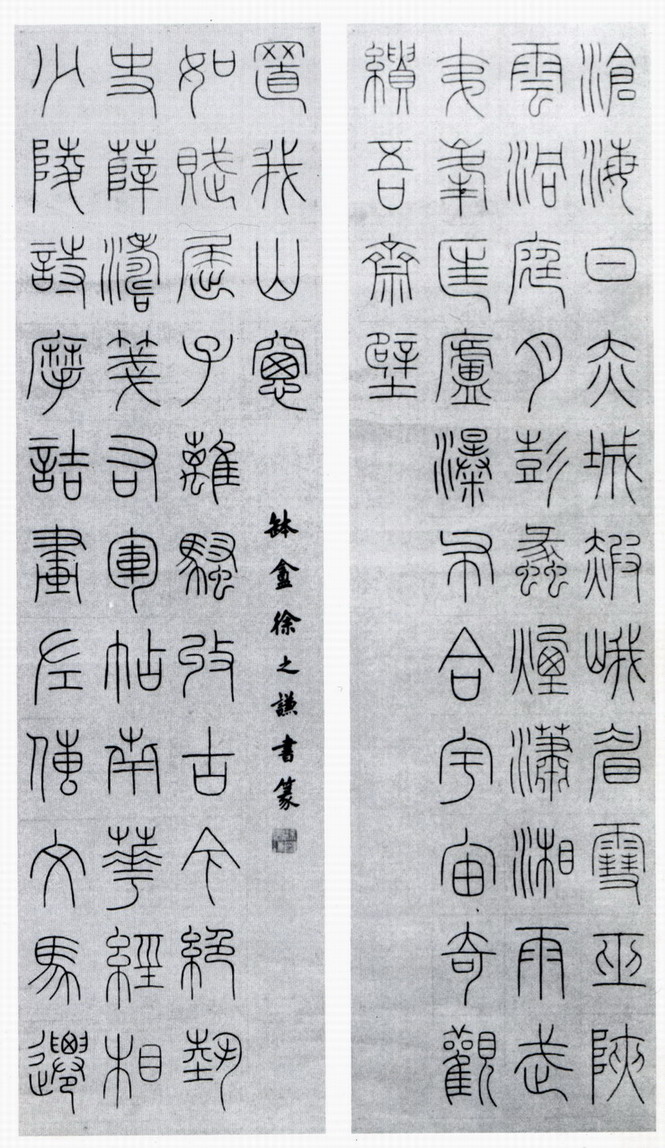 滄海日赤城赮峨眉雪巫峽
雲洞庭月彭蠡煙瀟湘雨武
夷峯匡廬瀑布合宇宙奇觀
繢吾齋壁
少陵詩摩詰畫左傳文馬遷
史薛濤箋右軍帖南華經相
如賦屈子離騷收古今絕藝
置我山窗
缽盦徐之謙書篆